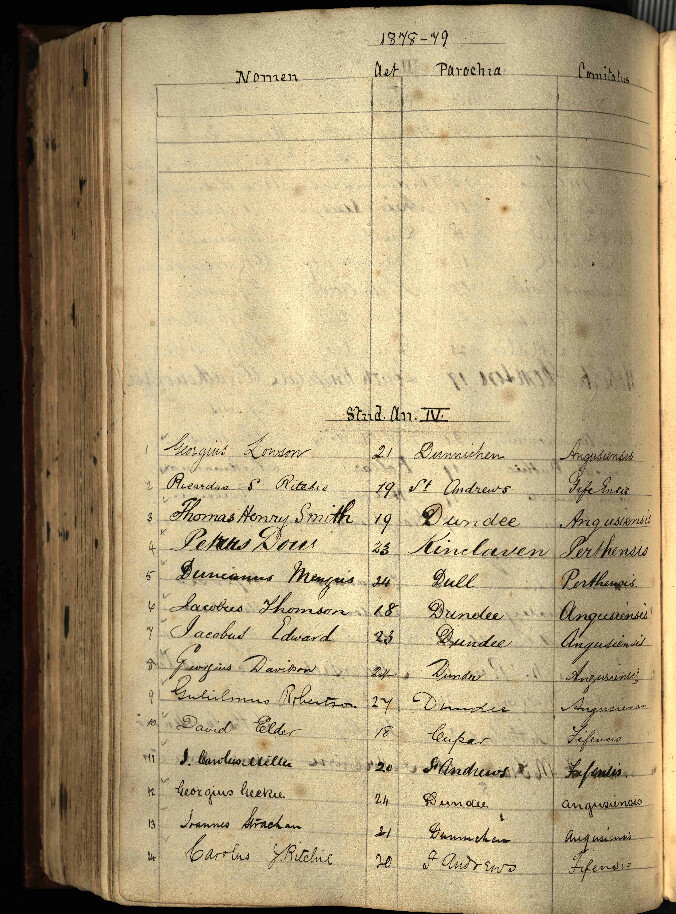 1878-79
Nomen Aet Parochia Comitatus
Stud. An. IV.
1 Georgius Lowson 21 Dunnichen Angusiensis
2 Ricardus S Ritchie 19 St Andrews Fifensis
3 Thomas Henry Smith 19 Dundee Angusiensis
4 Petrus Dow 23 Kinclaven Perthensis
5 Duncanus Menzies 24 Dull Perthensis
6 Jacobus Thomson 18 Dundee Angusiensis
7 Jacobus Edward 23 Dundee Angusiensis
8 Georgius Davidson 24 Dundee Angusiensis
9 Gulielmus Robertson 27 Dundee Angusiensis
10 David Elder 18 Cupar Fifensis
11 J. Carolus 20 St Andrews Fifensis
12 Georgius 24 Dundee Angusiensis
13 Ioannes Strachan 21 Dunnichen Angusiensis
14 Carolus Ritchie 20 St Andrews Fifensis